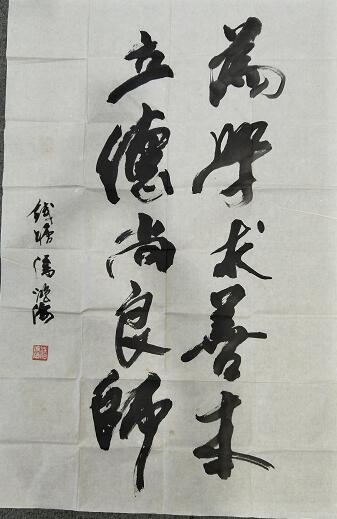 為學求善本
立德尚良師
錢塘潘鴻海